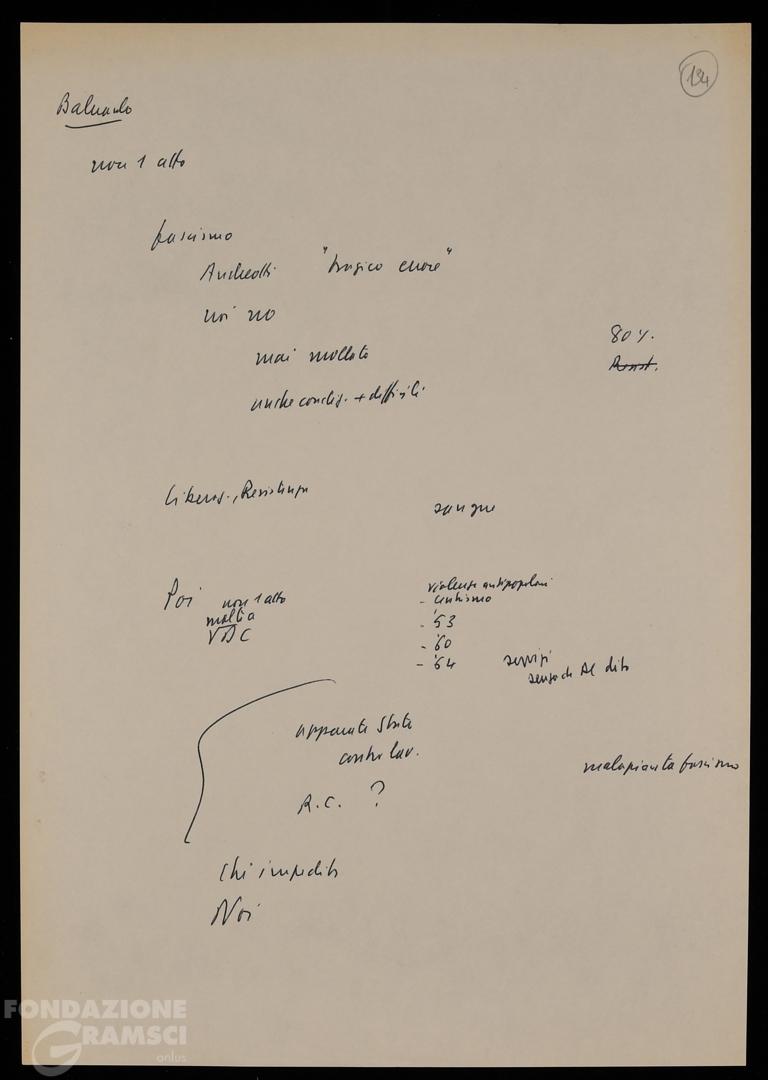 134
Baluardo
non 1 atto
fascismo
Andreotti "tragico errore"
noi no
mai mollato
80%
anche condiz. + difficili
Liberaz., Resistenza
sangue
Poi non 1 atto
violenze antipopolari
- centrismo
- '53
- '60
- '64 servizi
senza che Al dito
apparato Stato
contro lav.
malapianta fascismo
R.C. ?
Chi impedito
Noi
FONDAZIONE
GRAMSCI
onlus